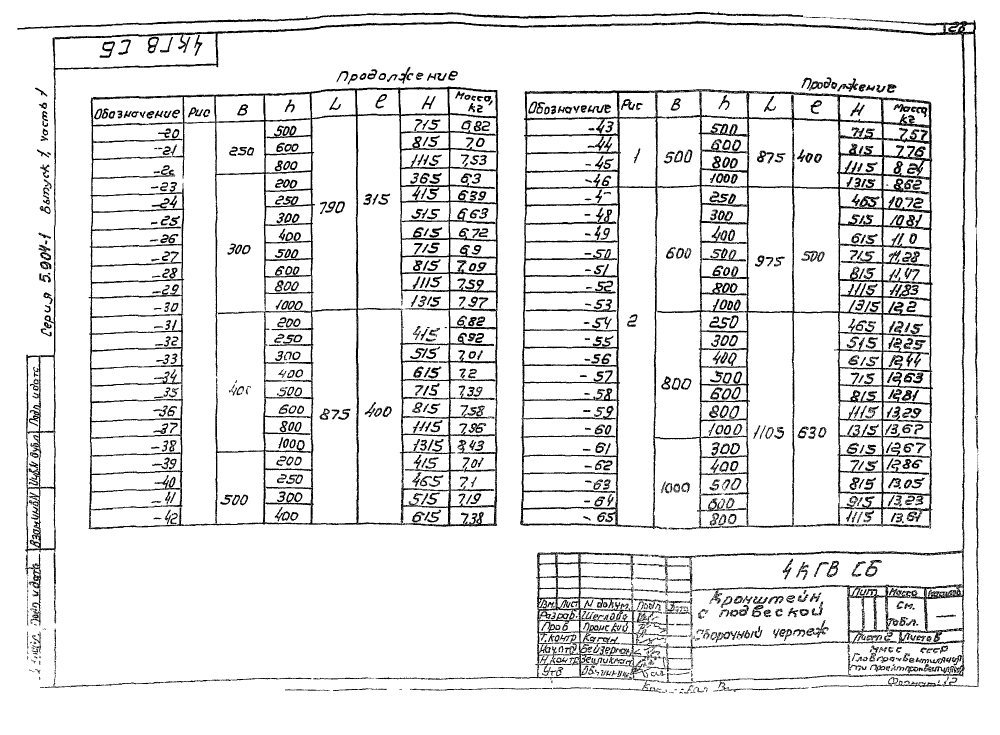 28
4КГВ СБ
Серия 5.904-1 Выпуск 1, часть 1
Продолжение
Обозначение Рис В h L e H Масса, кг
-20 250 500 790 315 715 6,82
-21 600 815 7,0
-22 800 1115 7,53
-23 300 200 365 6,3
-24 250 415 6,39
-25 300 515 6,63
-26 400 615 6,72
-27 500 715 6,9
-28 600 815 7,09
-29 800 1115 7,59
-30 1000 1315 7,97
-31 400 200 875 400 6,82
-32 250 415 6,92
-33 300 515 7,01
-34 400 615 7,2
-35 500 715 7,39
-36 600 815 7,58
-37 800 1115 7,96
-38 1000 1315 8,43
-39 500 200 415 7,01
-40 250 465 7,1
-41 300 515 7,19
-42 400 615 7,38
Продолжение
Обозначение Рис В h L e H Масса кг
-43 1 500 500 875 400 715 7,57
-44 600 815 7,76
-45 800 1115 8,24
-46 1000 1315 8,62
-4 2 600 250 975 500 465 10,72
-48 300 515 10,81
-49 400 615 11,0
-50 500 715 11,28
-51 600 815 11,47
-52 800 1115 11,83
-53 1000 1315 12,2
-54 800 250 1105 630 465 12,15
-55 300 515 12,25
-56 400 615 12,44
-57 500 715 12,63
-58 600 815 12,81
-59 800 1115 13,29
-60 1000 1315 13,67
-61 1000 300 615 12,67
-62 400 715 12,86
-63 500 815 13,05
-64 600 915 13,23
-65 800 1115 13,61
4КГВ СБ
Кронштейн
с подвеской
Сборочный чертеж
Лит Масса Масштаб
см. табл. —
Лист 2 Листов
ММСС СССР
Главпромвентиляция
ГПИ Проектпромвентиляция
Изм. Лист N докум. Подп. Дата
Разраб. Щеглова
Пров Пронский
Т.контр Каган
Нач.отд Бейзерман
Н.контр
Утв
Подп. и дата
Взам.инв.N
Инв.N дубл.
Подп. и дата
Формат 12